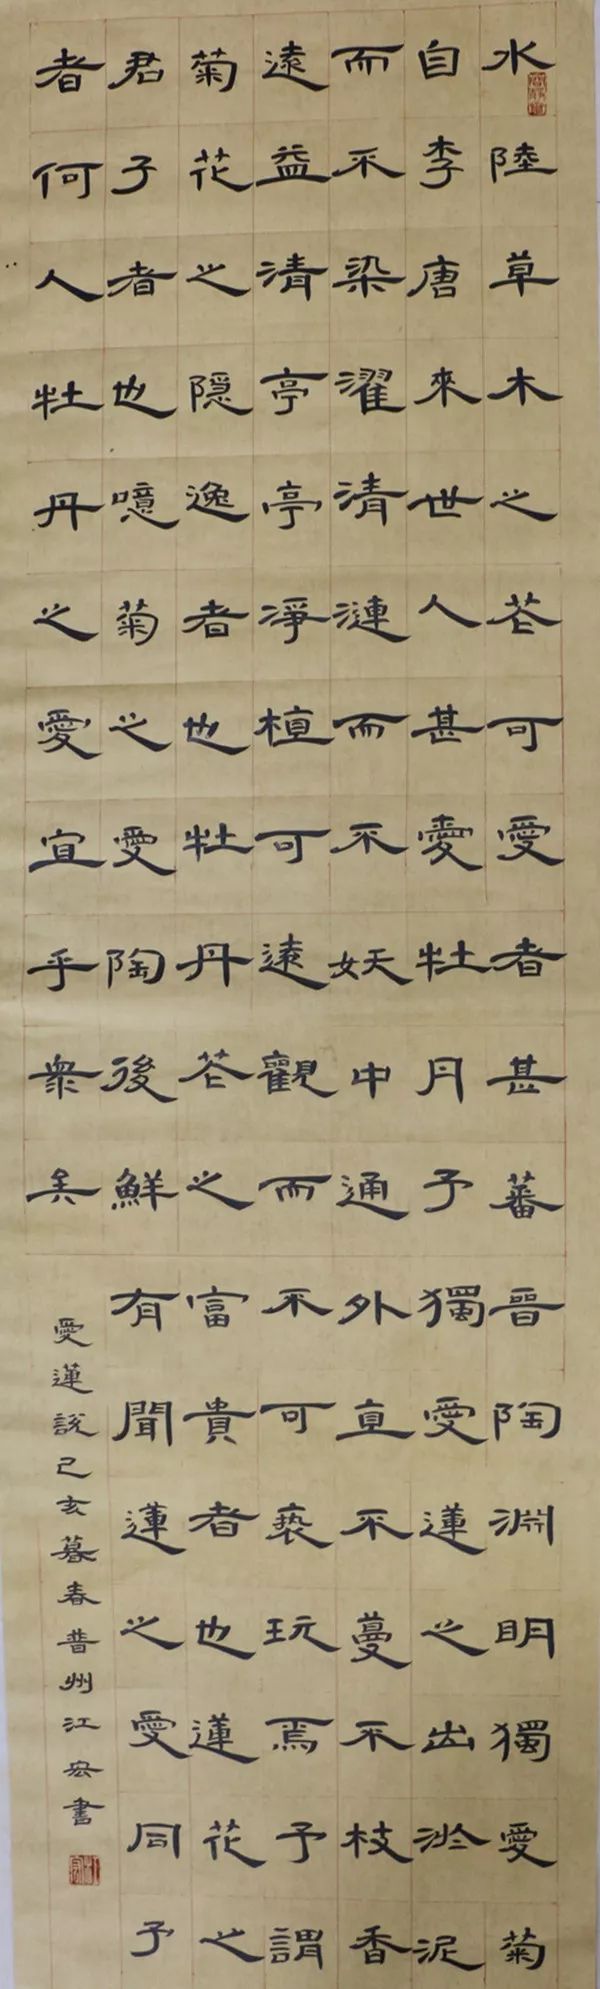 水陸草木之花可愛者甚蕃晉陶淵明獨愛菊
自李唐來世人甚愛牡丹予獨愛蓮之出淤泥
而不染濯清漣而不妖中通外直不蔓不枝香
遠益清亭亭淨植可遠觀而不可褻玩焉予謂
菊花之隐逸者也牡丹花之富貴者也蓮花之
君子者也噫菊之愛陶後鮮有聞蓮之愛同予
者何人牡丹之愛宜乎衆矣
愛蓮說己亥暮春普州江宏書